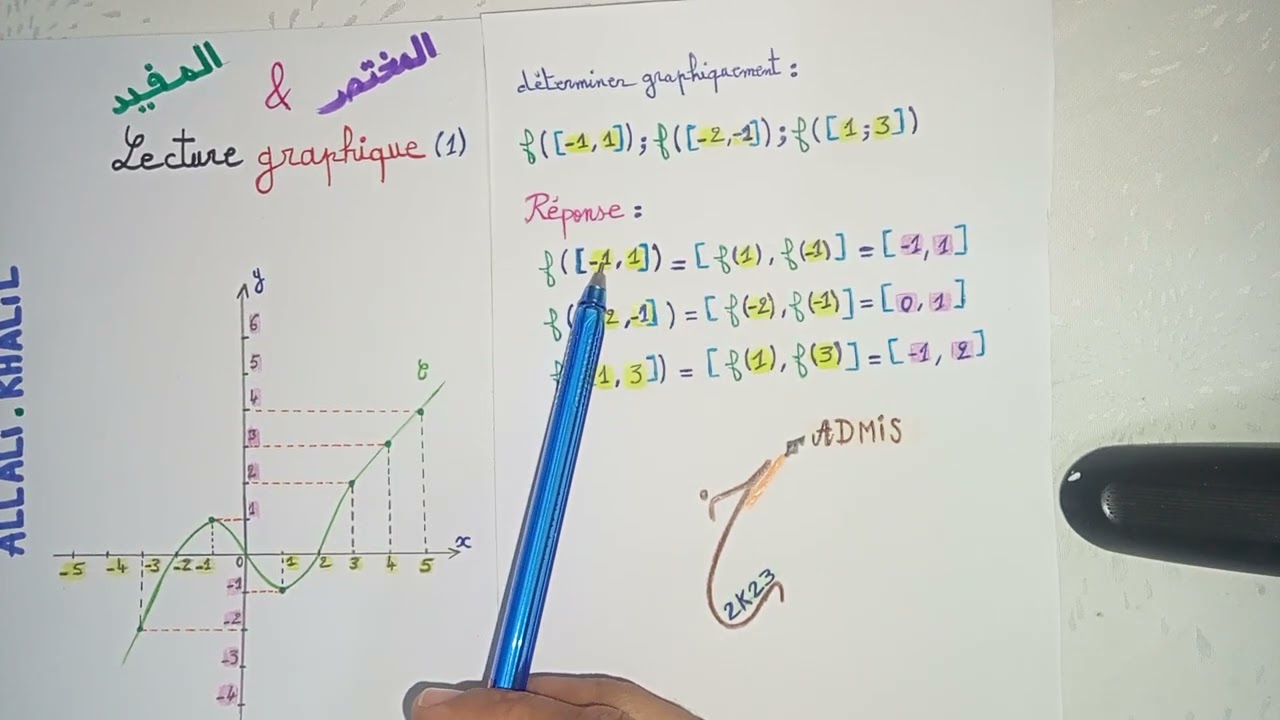 المفيد & المختصر
Lecture graphique (1)
ALLALI . KHALIL
y
6
5
4
3
2
1
-5 -4 -3 -2 -1 0 1 2 3 4 5 x
-1
-2
-3
-4
déterminer graphiquement :
f([-1,1]) ; f([-2,-1]) ; f([1;3])
Réponse :
f([-1,1]) = [f(1), f(-1)] = [-1, 1]
2,-1]) = [f(-2), f(-1)] = [0, 1]
1, 3]) = [f(1), f(3)] = [-1, 2]
ADMIS
2K23